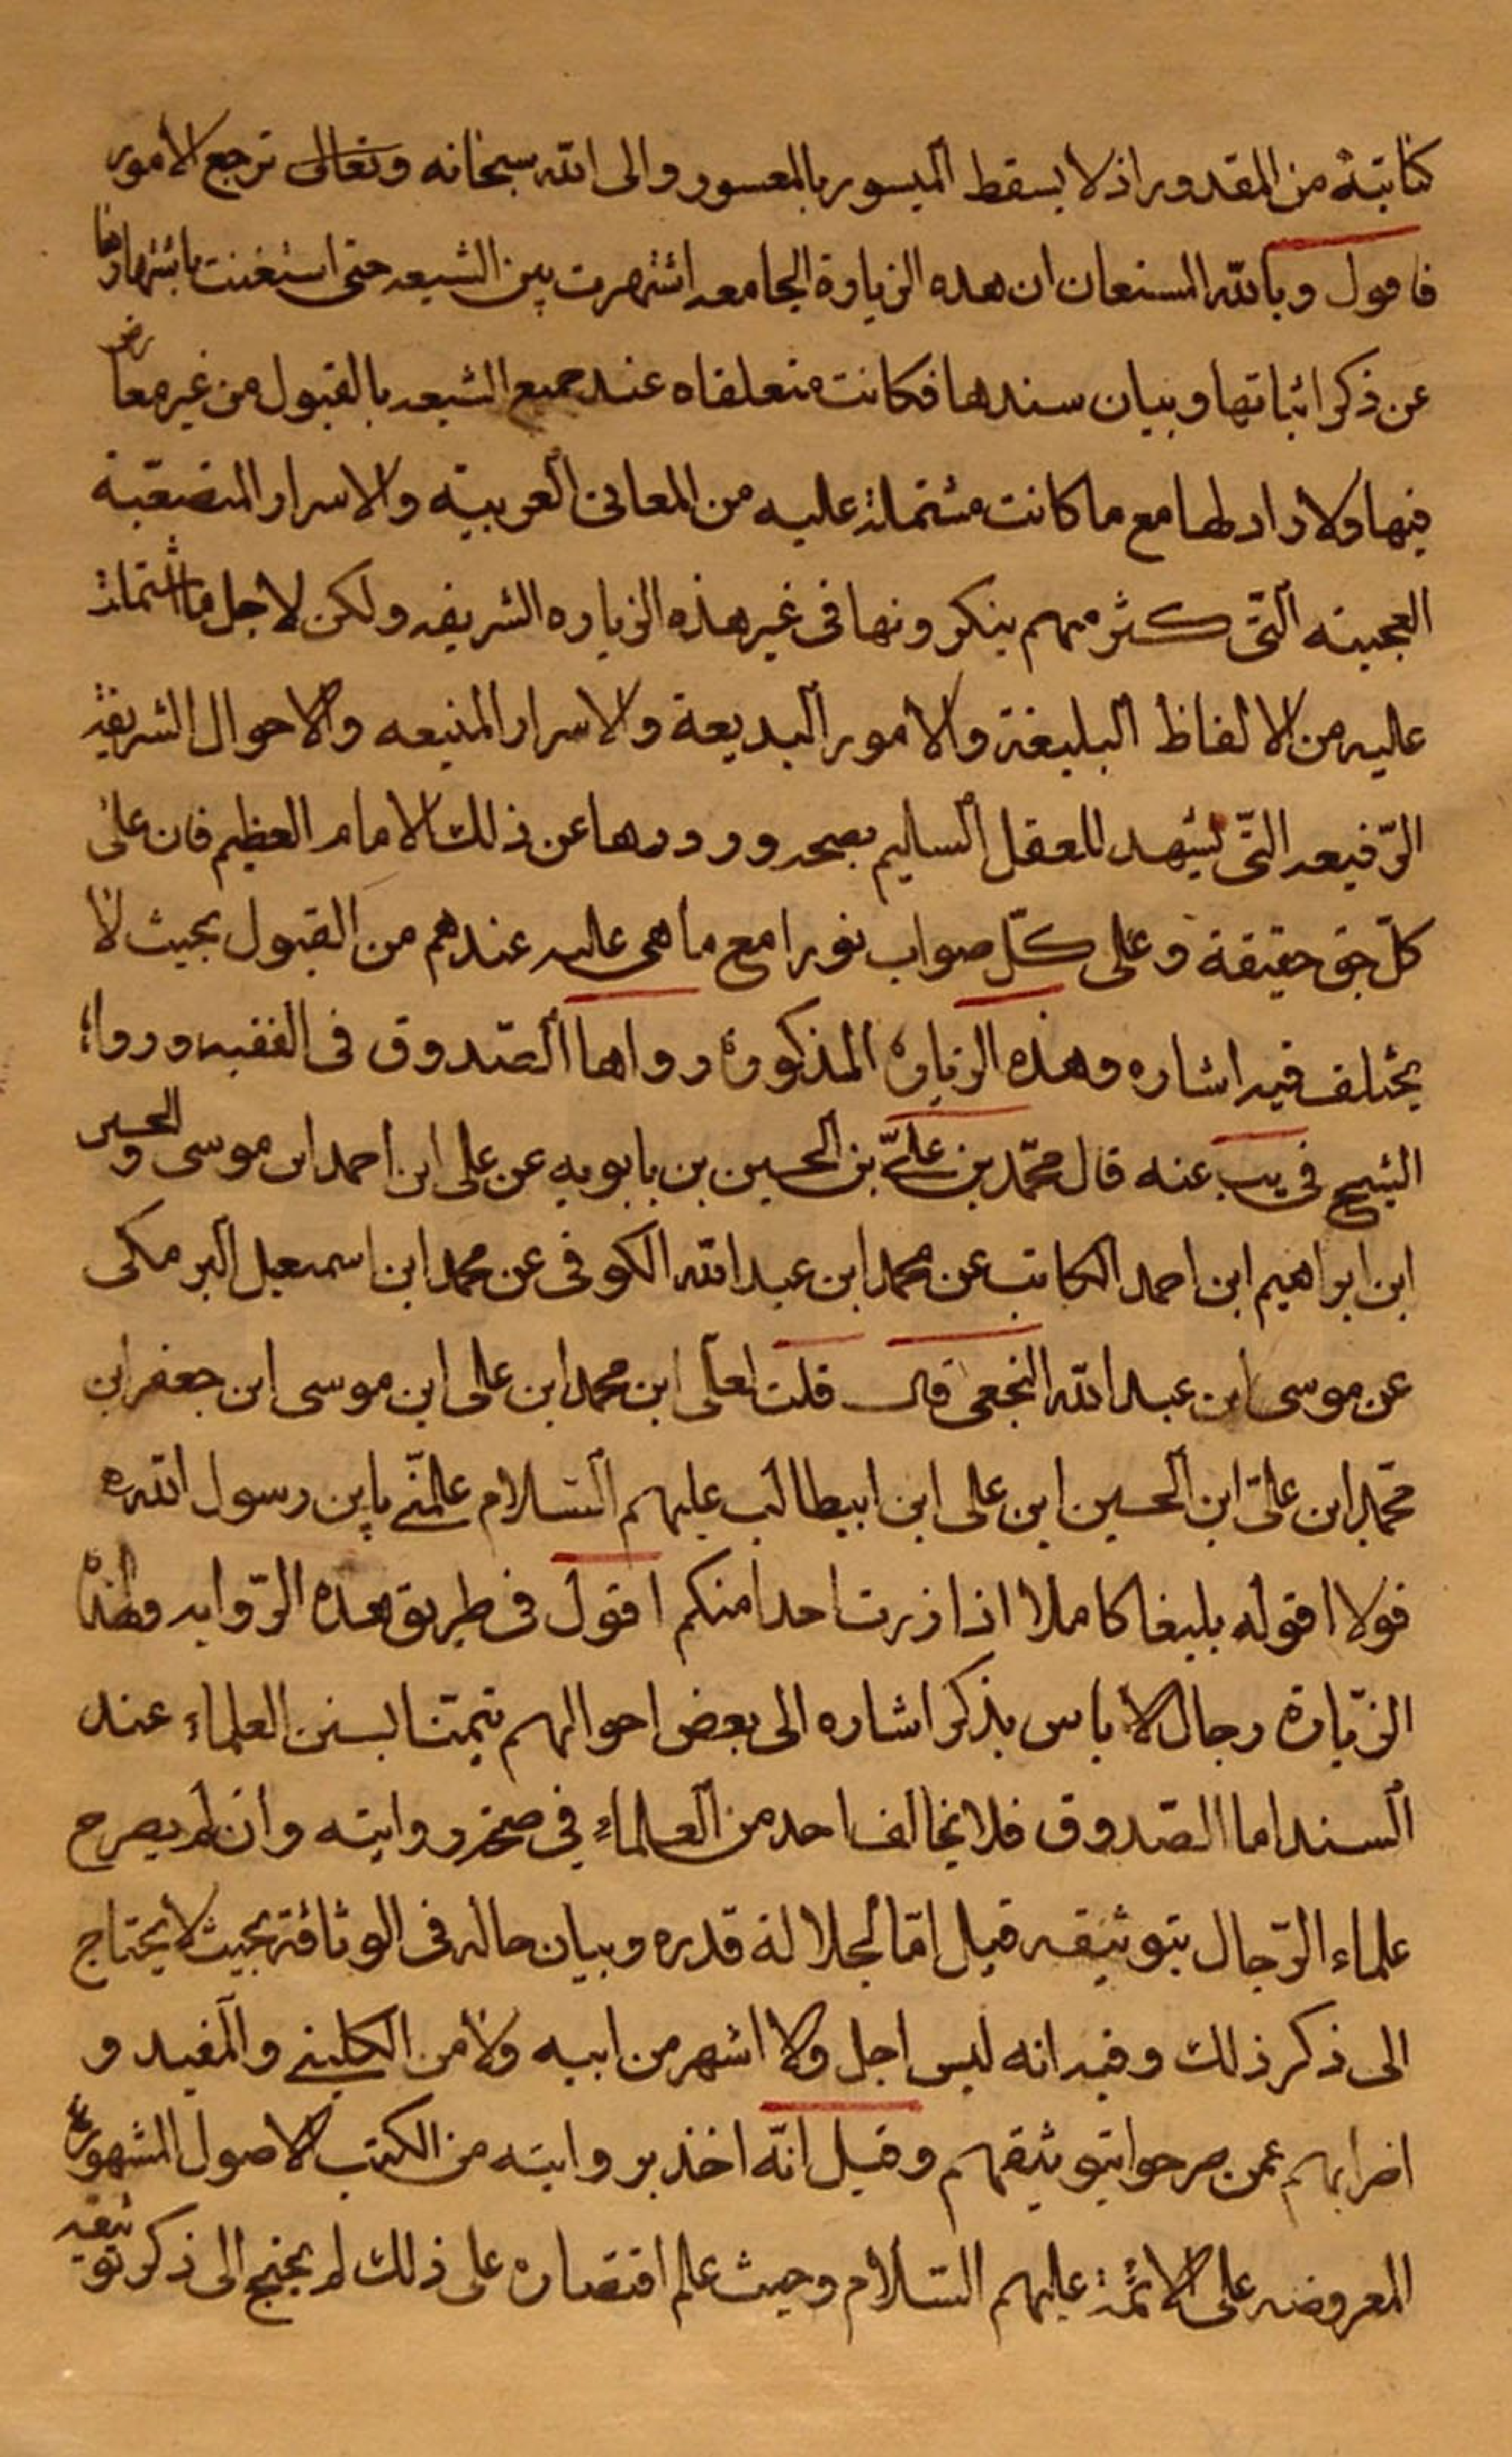 كتابته من المقدور اذ لا يسقط الميسور بالمعسور والى الله سبحانه وتعالى ترجع الامور
فاقول وبالله المستعان ان هذه الزيارة الجامعه اشتهرت بين الشيعه حتى استغنت باشتهارها
عن ذكر اثباتها وبيان سندها فكانت متعلقاه عند جميع الشيعه بالقبول من غير معارض
فيها ولا راد لها مع ما كانت مشتملة عليه من المعانى الغريبة والاسرار المتصعّبة
العجيبه الّتى كثر منهم ينكرونها فى غير هذه الزياره الشريفه ولكن لاجل ما اشتملت
عليه من الالفاظ البليغة والامور البديعة والاسرار المنيعه والاحوال الشريفة
الرّفيعه التّى يشهد للعقل السليم بصحه ورودها عن ذلك الامام العظيم فان على
كلّ حق حقيقة وعلى كلّ صواب نورا مع ما هى عليه عندهم من القبول بحيث لا
يختلف فيه اشاره وهذه الزياره المذكورة رواها الصّدوق فى الفقيه ورواه
الشيخ فى يب عنه قال محمّد بن علىّ بن الحسين بن بابويه عن على ابن احمد ابن موسى والحسين
ابن ابراهيم ابن احمد الكاتب عن محمد ابن عبد الله الكوفى عن محمد ابن اسمعيل البرمكى
عن موسى ابن عبد الله النخعى قال قلت لعلى ابن محمد ابن على ابن موسى ابن جعفر ابن
محمّد ابن علىّ ابن الحسين ابن على ابن ابيطالب عليهم السّلام علّمنى يابن رسول الله ص
قولا اقوله بليغا كاملا اذا زرت احدا منكم اقول فى طريق هذه الرّوايه وهذه
الزّيارة رجال لا باس بذكر اشاره الى بعض احوالهم تيمّنا بسنن العلماء عند
السند اما الصّدوق فلا يخالف احد من العلماء في صحّة روايته وان لم يصرح
علماء الرّجال بتوثيقه قيل امّا لجلالة قدره وبيان حاله فى الوثاقة بحيث لا يحتاج
الى ذكر ذلك وفيه انه ليس اجل ولا اشهر من ابيه ولا من الكلينى والمفيد و
اضرابهم ممن صرحوا بتوثيقهم وقيل انّه اخذ بروايته من الكتب الاصول المشهورة
المعروضه على الائمّة عليهم السّلام وحيث علم اقتصاره على ذلك لم يحتج الى ذكر توثيقه